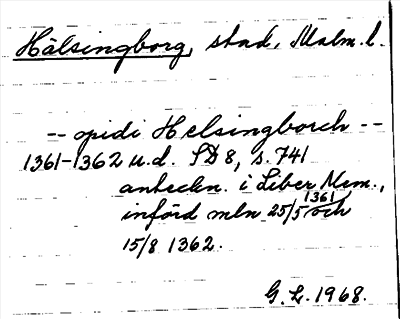 Hälsingborg, stad, Malm. l.
-- opidi Helsingborch --
1361-1362 u.d. SD 8, s. 741
anteckn. i Liber Mem.,
införd mln 25/5 1361 och
15/8 1362.
G. L. 1968.